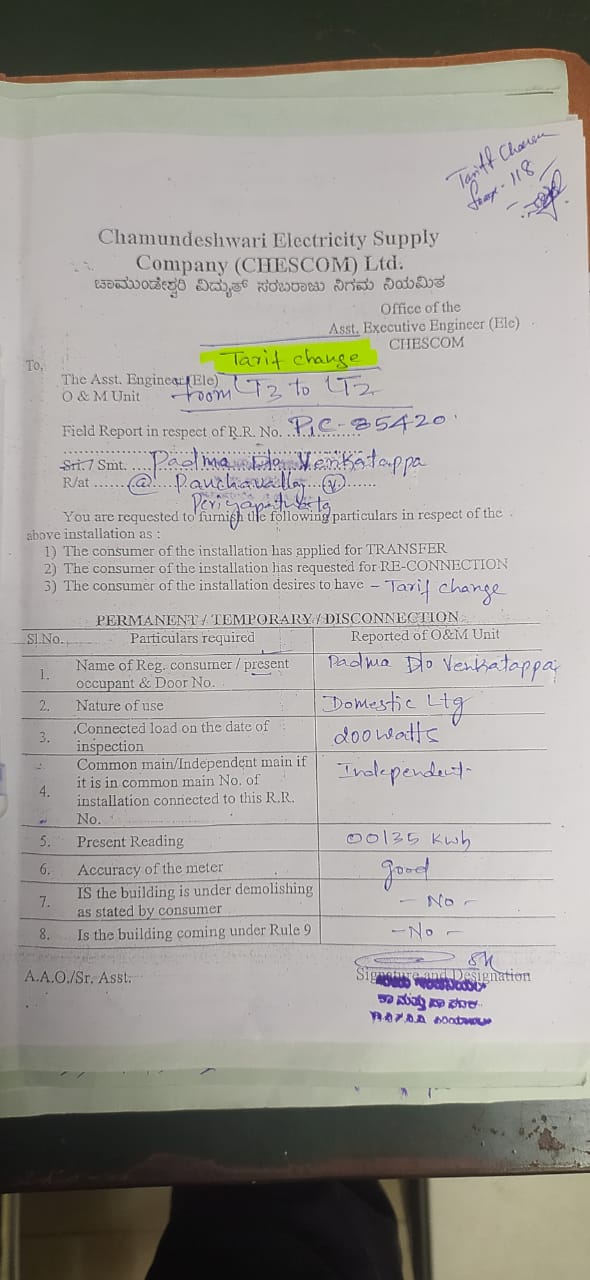 Tariff
118
Chamundeshwari Electricity Supply
Company (CHESCOM) Ltd.
ಚಾಮುಂಡೇಶ್ವರಿ ವಿದ್ಯುತ್ ಸರಬರಾಜು ನಿಗಮ ನಿಯಮಿತ
Office of the
Asst. Executive Engineer (Ele)
CHESCOM
To,
Tarif change
The Asst. Engineer (Ele)
from LT3 to LT2
O & M Unit
Field Report in respect of R.R. No. ... PIC-85420
Sri. / Smt. .... Padma D/o Venkatappa
R/at ...... @ Panchavalley (V)
You are requested to furnish the following particulars in respect of the
above installation as :
1) The consumer of the installation has applied for TRANSFER
2) The consumer of the installation has requested for RE-CONNECTION
3) The consumer of the installation desires to have - Tarif change
PERMANENT / TEMPORARY / DISCONNECTION
Sl.No. Particulars required Reported of O&M Unit
1. Name of Reg. consumer / present occupant & Door No. Padma D/o Venkatappa
2. Nature of use Domestic Ltg
3. Connected load on the date of inspection 200 watts
4. Common main/Independent main if it is in common main No. of installation connected to this R.R. No. Independent
5. Present Reading 00135 kwh
6. Accuracy of the meter good
7. IS the building is under demolishing as stated by consumer - No -
8. Is the building coming under Rule 9 - No -
A.A.O./Sr. Asst. Signature and Designation